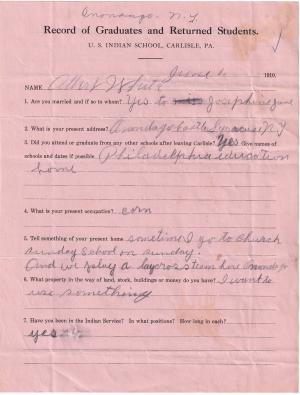 Onondaga. N.Y.
Record of Graduates and Returned Students.
U. S. INDIAN SCHOOL, CARLISLE, PA.
June 1910.
NAME Albert White
1. Are you married and if so to whom? Yes to Josephine
2. What is your present address? Onondaga Castle Syracuse N.Y
3. Did you attend or graduate from any other schools after leaving Carlisle? Yes Give names of
schools and dates if possible. Philadelphia education
home
4. What is your present occupation? corn
5. Tell something of your present home sometime I go to church
sunday school on sunday.
And we play a lacross team here
6. What property in the way of land, stock, buildings or money do you have? I want to
use something
7. Have you been in the Indian Service? In what positions? How long in each?
yes